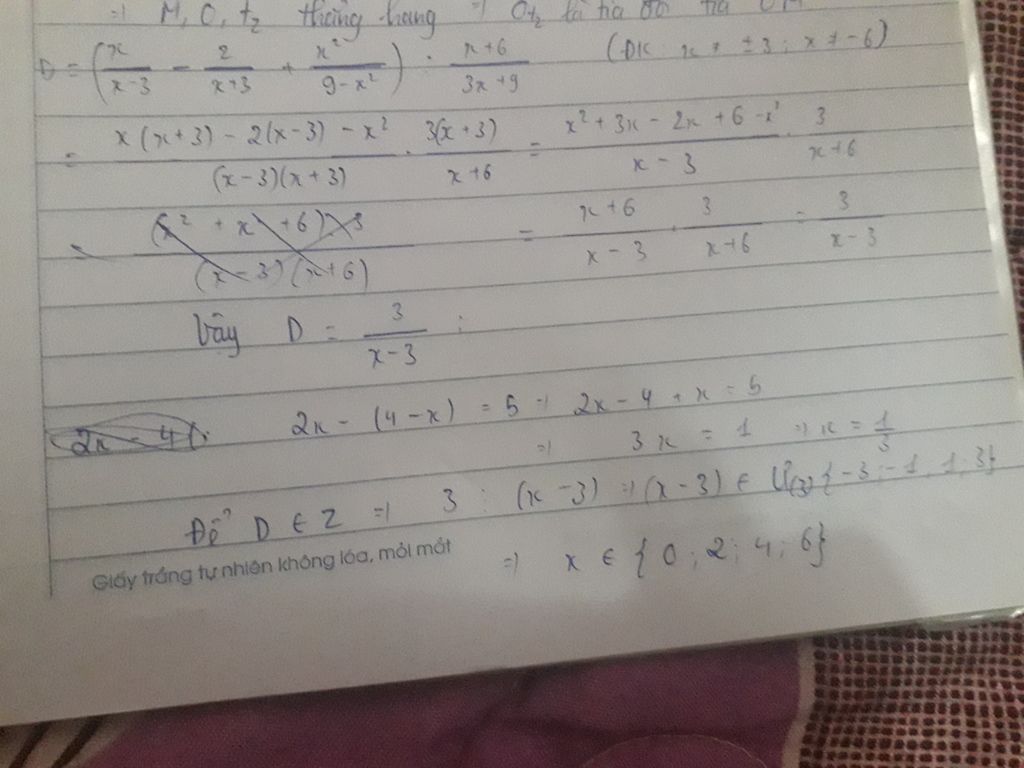 => M, O, t₂ thẳng hàng => Ot₂ là tia đối tia OM
D = (x/(x-3) - 2/(x+3) + x²/(9-x²)) : (x+6)/(3x+9) (ĐK: x ≠ ±3; x ≠ -6)
= (x(x+3) - 2(x-3) - x²)/((x-3)(x+3)) . 3(x+3)/(x+6) = (x² + 3x - 2x + 6 - x²)/(x-3) . 3/(x+6)
= (x+6)/(x-3) . 3/(x+6) = 3/(x-3)
Vậy D = 3/(x-3) ;
2x - (4-x) = 5 => 2x - 4 + x = 5
=> 3x = 1 => x = 1/3
Để D ∈ Z => 3 : (x-3) => (x-3) ∈ Ư(3) {-3; -1; 1; 3}
=> x ∈ {0; 2; 4; 6}
Giấy trắng tự nhiên không lóa, mỏi mắt